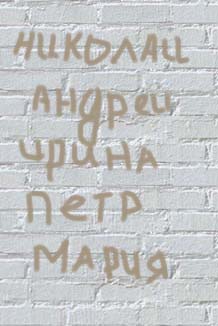 НИКОЛАЙ
АНДРЕЙ
ИРИНА
ПЕТР
МАРИЯ